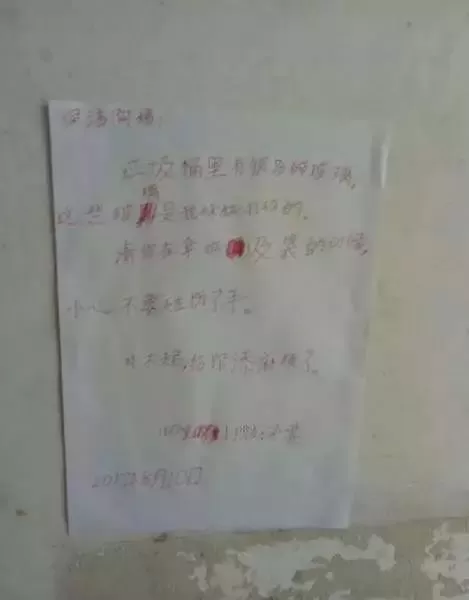 保洁阿姨:
垃圾桶里有锋利的玻璃,
这些玻璃是我妹妹打碎的。
请你在拿垃圾袋的时候,
小心不要碰伤了手。
对不起,给你添麻烦了。
小
2017年8月10日